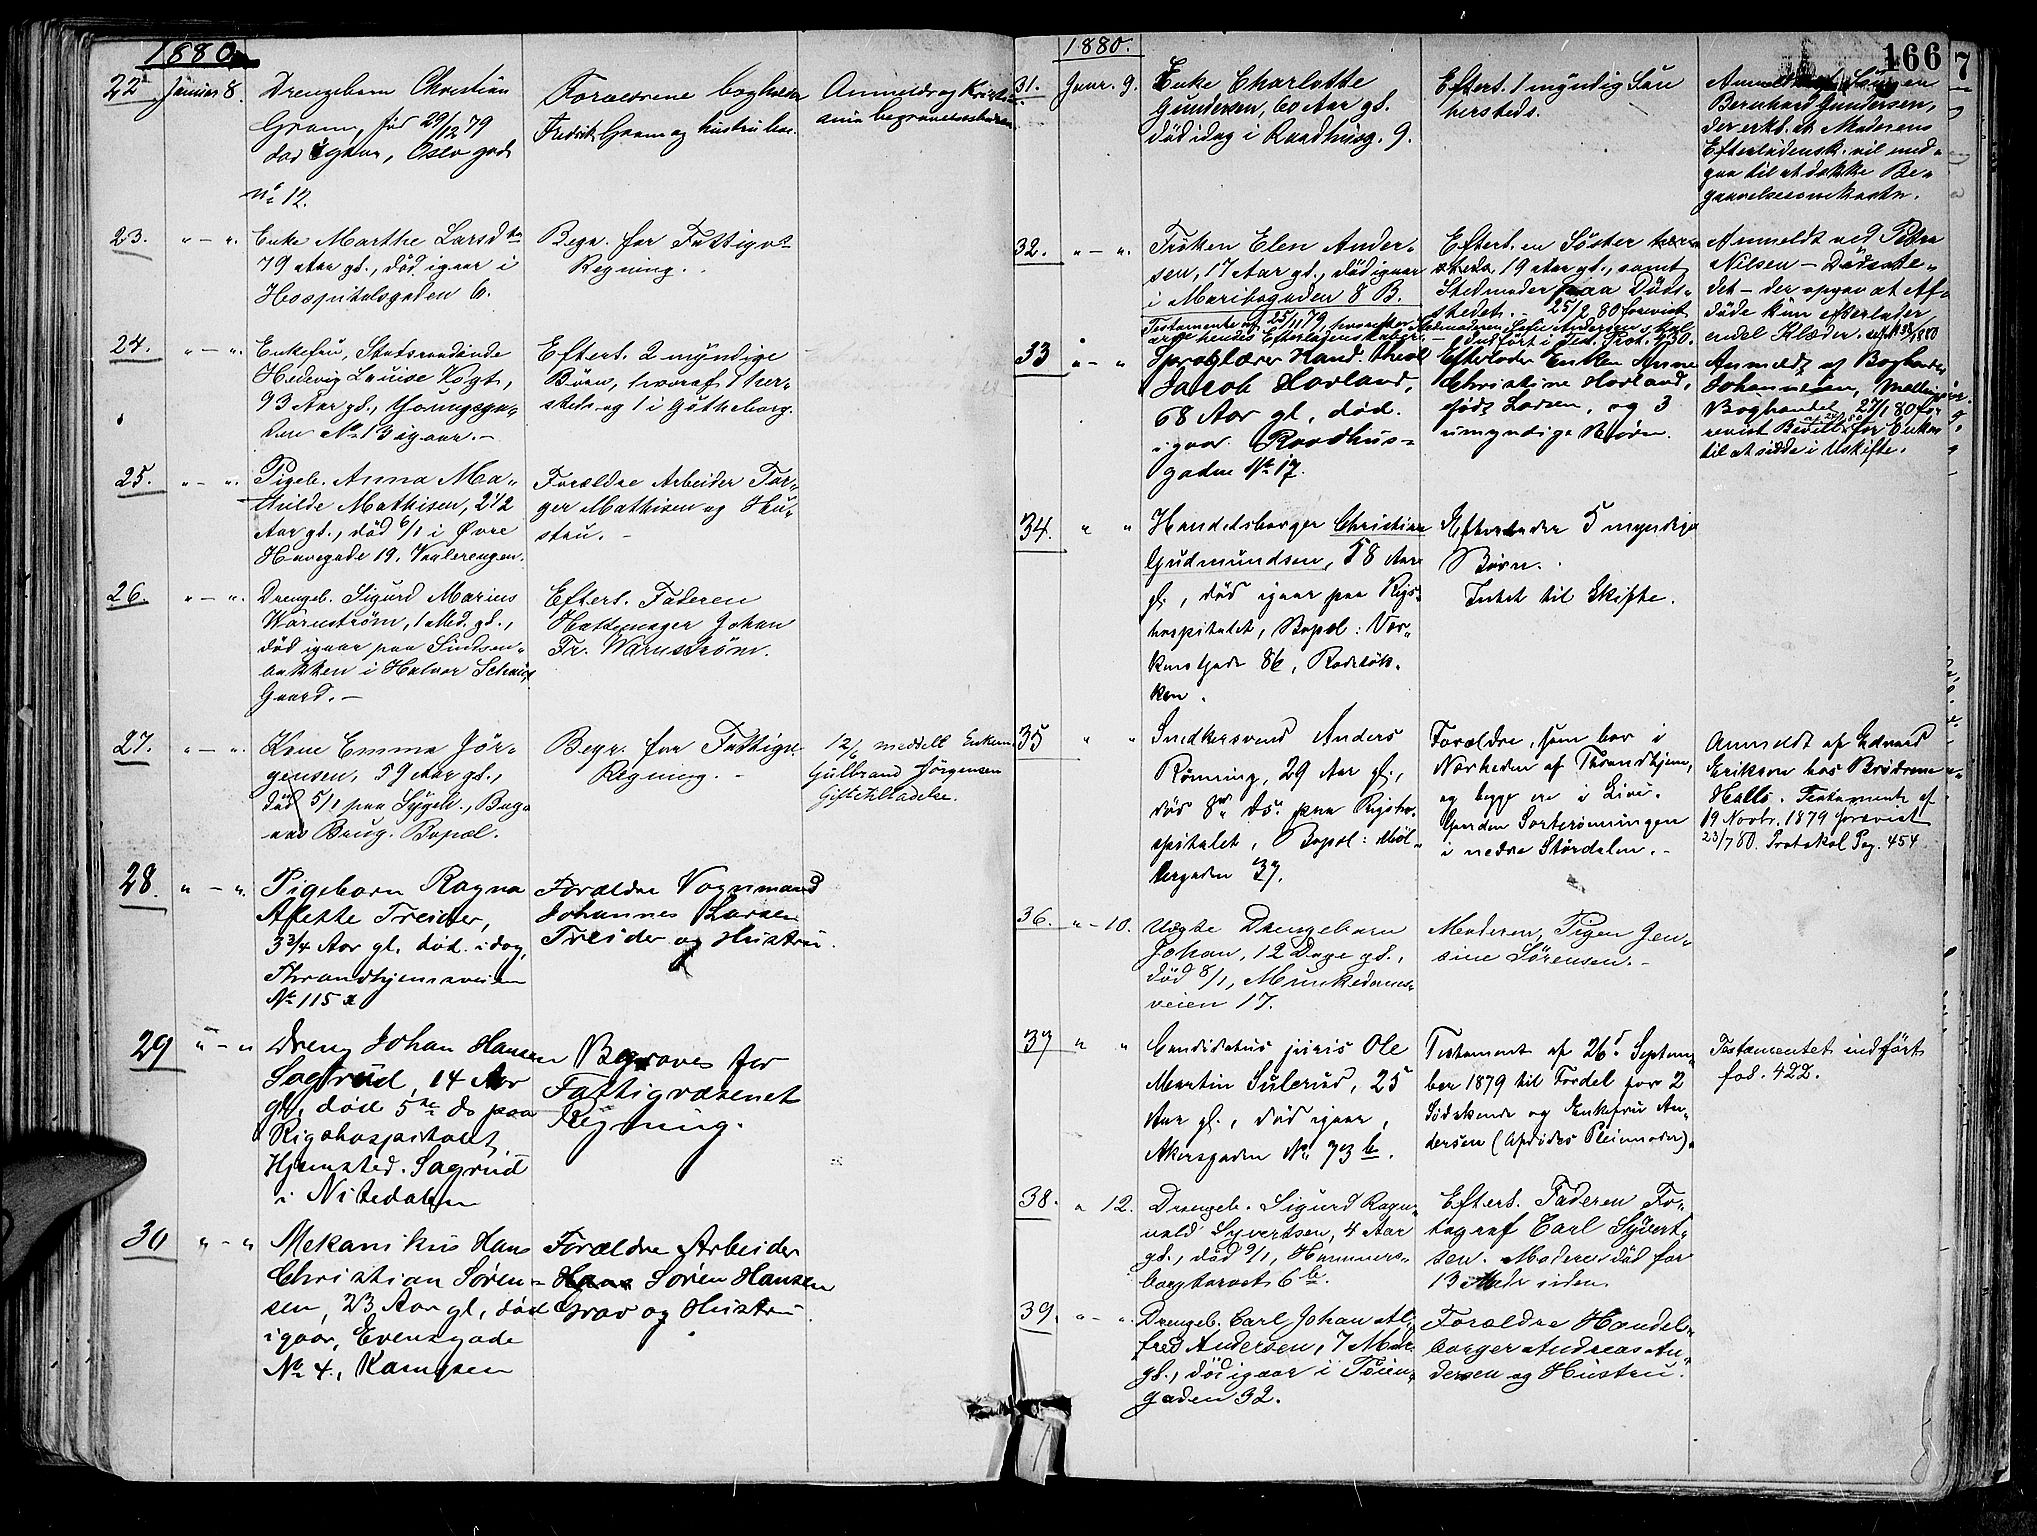 1880.
22 Januar 8. Drengebarn Christian
Gram, född 29/12 79
død igaar, Oslo gade
No 12.
Forældrene bogholder
Fredrik Gram og hustru her.
Anmeldt og Kristi-
ania begravelsesbureau
23. " - " Enke Marthe Larsdtr
79 Aar gl., død igaar i
Hospitalsgaden 6.
Begr. for Fattigv.
Regning.
24. " - " Enkefru, Statsraadinde
Hedevig Louise Vogt,
93 Aar gl., Youngsga-
den No 13 igaar. -
Efterl. 2 myndige
Børn, hvoraf 1 her-
steds og 1 i Gøtheborg.
25. " - " Pigeb. Anna Ma-
thilde Mathisen, 2 1/2
Aar gl., død 6/1 i Øvre
Havegade 19, Vaalerengen.
Forældre Arbeider Tor-
ger Mathisen og Hu-
stru. -
26. " - " Drengeb. Sigurd Marius
Warnstrøm, 1 Md. gl.,
død igaar paa Sindsen-
bakken i Halvor Schous
Gaard. -
Efterl. Faderen
Hattemager Johan
Fr. Warnstrøm.
27. " - " Kone Emma Jør-
gensen, 59 Aar gl.,
død 5/1 paa Sygeh.,
Bopæl.
Begr. for Fattigv.
Regning. -
12/6 meddelt Enkem.
Gulbrand Jørgensen
Giftetilladelse.
28. " - " Pigebarn Ragna
Alette Treider,
3 3/4 Aar gl. død idag,
Throndhjemsveien
No 115 a
Forældre Vognmand
Johannes Larsen
Treider og Hustru.
29 " - " Dreng Johan Hansen
Sagrud, 14 Aar
gl, død 5te ds paa
Rigshospitalet,
Hjemsted. Sagrud
i Nitedalen
Begraves for
Fattigvæsenets
Regning.
30 " - " Mekanikus Hans
Christian Søren-
sen, 23 Aar gl, død
igaar, Evensgade
No 4, Kampen
Forældre Arbeider
Hans Søren Hansen
Grav og Hustru
1880.
166
31. Janr. 9. Enke Charlotte
Gundersen, 60 Aar gl.
død idag i Raadhusg. 9.
Efterl. 1 myndig Søn
hersteds.
Anmeldt af Sønnen
Bernhard Gundersen,
der erkl. at Moderens
Efterladensk. vil med-
gaa til at dække Be-
gravelsesomkostn.
32. " - " Frøken Elen Ander-
sen, 17 Aar gl., død igaar
i Maribogaden 8 B.
Efterl. en Søster hersteds,
19 Aar gl., samt
Stedmoder paa Døds-
stedet. - 25/2 80 forevist
Testamente af 25/11 79, hvorefter Stedmoderen Sofie Andersen skal
arve hendes Efterladenskaber. - Indført i Test. Prot. 430.
Anmeldt ved Petra
Nilsen - Dødsste-
det - der opgav at Af-
døde kun efterlader
endel Klæder.
33 " - " Sproglærer Kand. theol
Jacob Hovland,
68 Aar gl, død
igaar Raadhus-
gaden No 17.
Efterlader Enken Anne
Christine Hovland,
født Larsen, og 3
umyndige Børn.
Anmeldt af Boghandler
Johannesen,
Boghandel 27/1 80 fo-
revist Bevill. for Enken
til at sidde i Uskifte.
34. " " Handelsborger Christian
Gudmundsen, 58 Aar
gl., død igaar paa Rigs-
hospitalet, Bopæl: Vær-
kens Gade 86, Rodeløk-
ken.
Efterlader 5 myndige
Børn.
Intet til Skifte.
35 " " Snedkersvend Anders
Rønning, 29 Aar gl.,
død 8de ds. paa Rigsho-
spitalet, Bopæl: Møl-
lergaden 37.
Forældre, som bor i
Nærheden af Throndhjem,
og begge ere i Live.
Gaarden Sorterønningen
i nedre Størdalen. -
Anmeldt af Edvard
Erikson hos Brødrene
Halls. Testamente af
19 Novbr. 1879 forevist
23/7 80. Protokol Pag. 454
36. " - 10. Uægte Drengebarn
Johan, 12 Dage gl.,
død 8/1, Munkedams-
veien 17.
Moderen, Pigen Jen-
sine Sørensen. -
37 " " Candidatus juris Ole
Martin Sulerud, 25
Aar gl., død igaar,
Akersgaden No 73 b.
Testament af 26d Septem-
ber 1879 til Fordel for 2
Sødskende og Enkefru An-
dersen (Afdødes Pleiemoder).
Testamentet indført
fol. 422.
38. " 12. Drengeb. Sigurd Ragn-
vald Syvertsen, 4 Aar
gl., død 9/1, Hammers-
borgtorvet 6 b.
Efterl. Faderen Fo-
tograf Carl Syvert-
sen. Moderen død for
13 Mdr siden.
39. " - " Drengeb. Carl Johan Al-
fred Andersen, 7 Mdr
gl., død igaar i Tøien-
gaden 32.
Forældre Handels-
borger Andreas An-
dersen og Hustru.